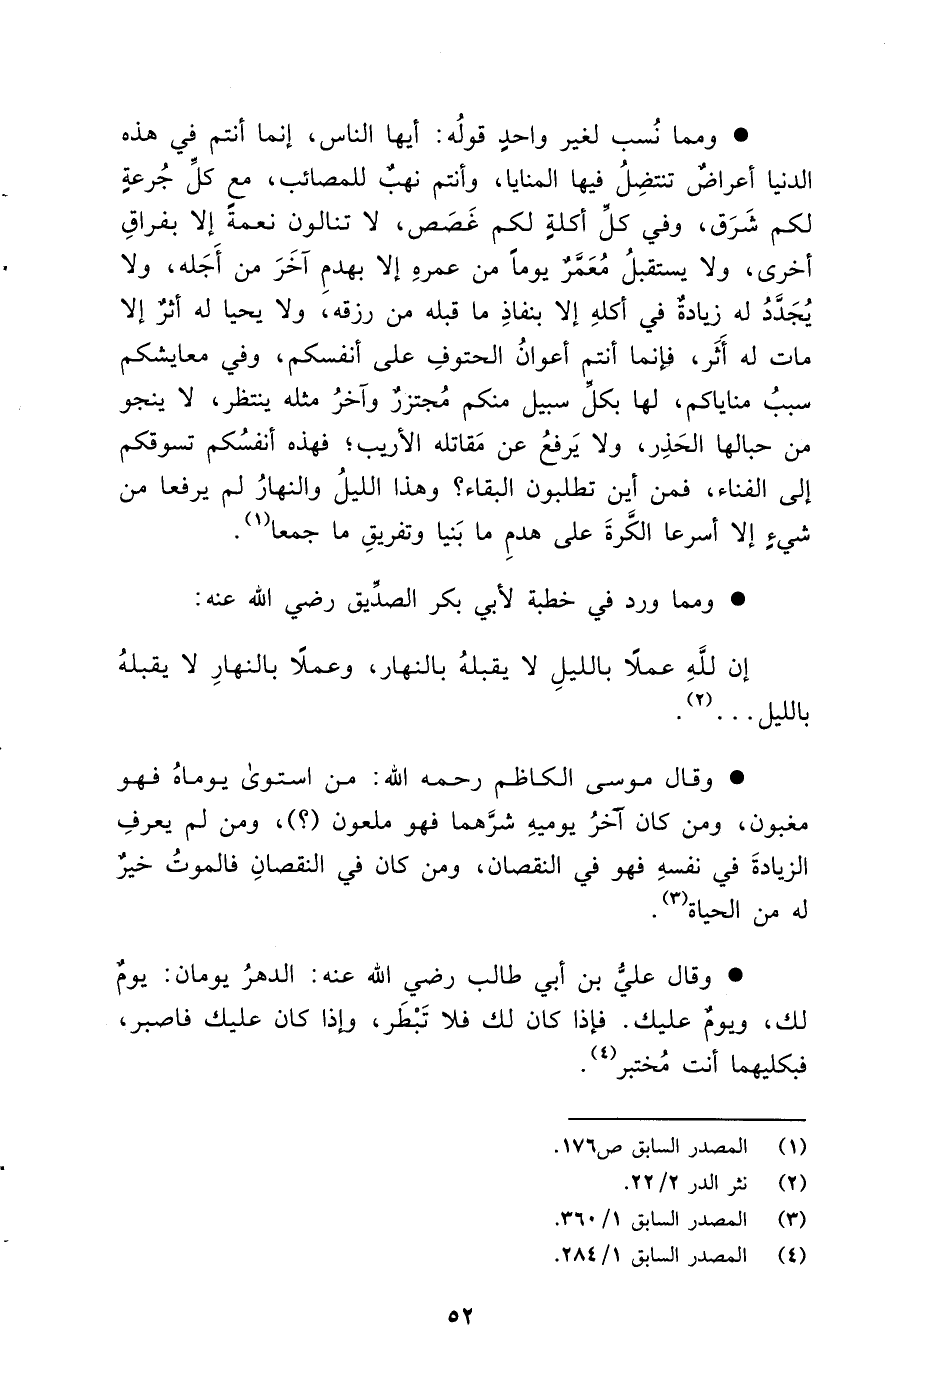 ● ومما نُسب لغير واحدٍ قولُه: أيها الناس، إنما أنتم في هذه
الدنيا أعراضٌ تنتضِلُ فيها المنايا، وأنتم نهبٌ للمصائب، مع كلِّ جُرعةٍ
لكم شَرَق، وفي كلِّ أكلةٍ لكم غَصَص، لا تنالون نعمةً إلا بفراقِ
أخرى، ولا يستقبلُ مُعَمَّرٌ يوماً من عمرهِ إلا بهدمِ آخَرَ من أَجَله، ولا
يُجَدَّدُ له زيادةٌ في أكلهِ إلا بنفاذِ ما قبله من رزقه، ولا يحيا له أثرٌ إلا
مات له أَثَر، فإنما أنتم أعوانُ الحتوفِ على أنفسكم، وفي معايشكم
سببُ مناياكم، لها بكلِّ سبيل منكم مُجتزرٌ وآخرُ مثله ينتظر، لا ينجو
من حبالها الحَذِر، ولا يَرفعُ عن مَقاتله الأريب؛ فهذه أنفسُكم تسوقكم
إلى الفناء، فمن أين تطلبون البقاء؟ وهذا الليلُ والنهارُ لم يرفعا من
شيءٍ إلا أسرعا الكَّرةَ على هدمِ ما بَنيا وتفريقِ ما جمعا(١).
● ومما ورد في خطبة لأبي بكر الصدِّيق رضي الله عنه:
إن للَّهِ عملًا بالليلِ لا يقبلهُ بالنهار، وعملًا بالنهارِ لا يقبلهُ
بالليل...(٢).
● وقال موسى الكاظم رحمه الله: من استوىٰ يوماهُ فهو
مغبون، ومن كان آخرُ يوميهِ شرَّهما فهو ملعون (؟)، ومن لم يعرفِ
الزيادةَ في نفسهِ فهو في النقصان، ومن كان في النقصانِ فالموتُ خيرٌ
له من الحياة(٣).
● وقال عليُّ بن أبي طالب رضي الله عنه: الدهرُ يومان: يومٌ
لك، ويومٌ عليك. فإذا كان لك فلا تَبْطَر، وإذا كان عليك فاصبر،
فبكليهما أنت مُختبر(٤).
(١) المصدر السابق ص١٧٦.
(٢) نثر الدر ٢٢/٢.
(٣) المصدر السابق ٣٦٠/١.
(٤) المصدر السابق ٢٨٤/١.
٥٢